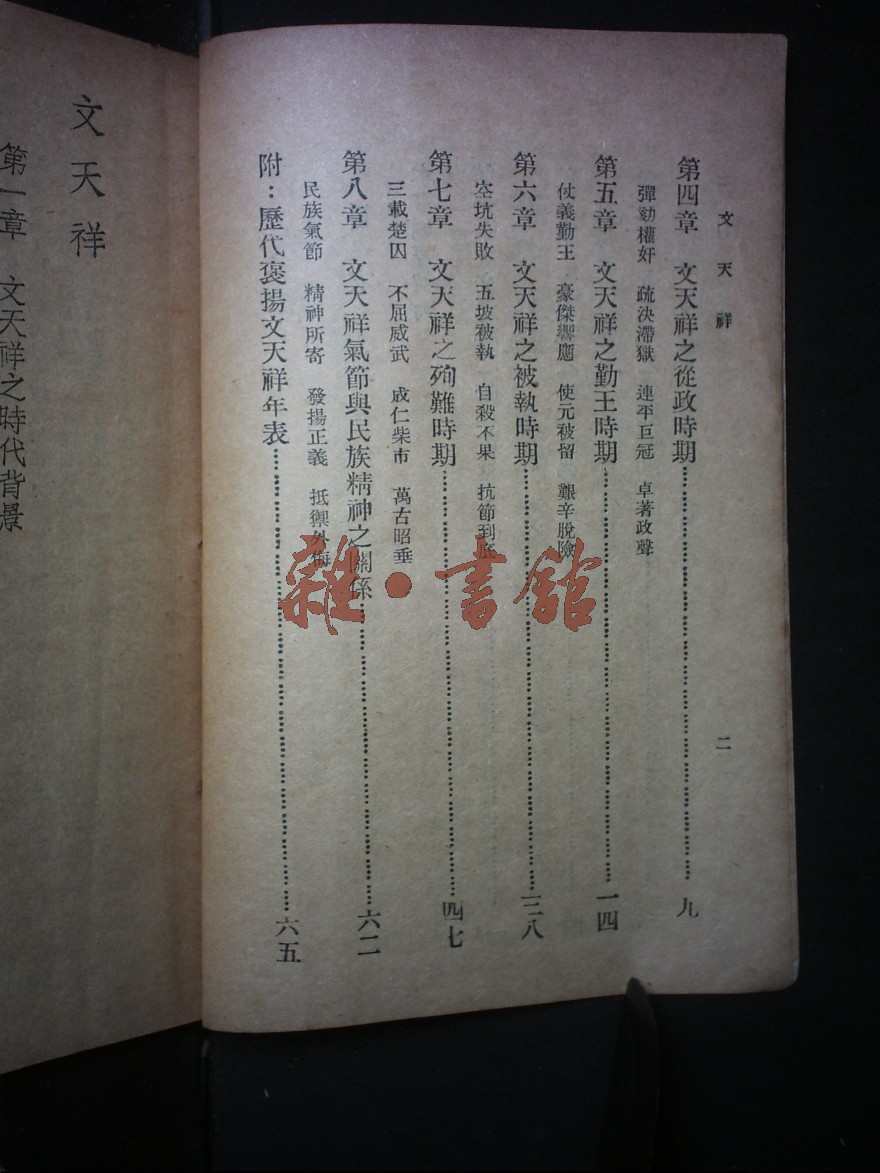 文天祥
二
第四章 文天祥之從政時期 九
彈劾權奸 疏決滯獄 連平巨寇 卓著政聲
第五章 文天祥之勤王時期 一四
仗義勤王 豪傑響應 使元被留 艱辛脫險
第六章 文天祥之被執時期 三八
空坑失敗 五坡被執 自殺不果 抗節到底
第七章 文天祥之殉難時期 四七
三載楚囚 不屈威武 成仁柴市 萬古昭垂
第八章 文天祥氣節與民族精神之關係 六二
民族氣節 精神所寄 發揚正義 抵禦外侮
附：歷代褒揚文天祥年表 六五
文天祥
第一章 文天祥之時代背景
雜·書館